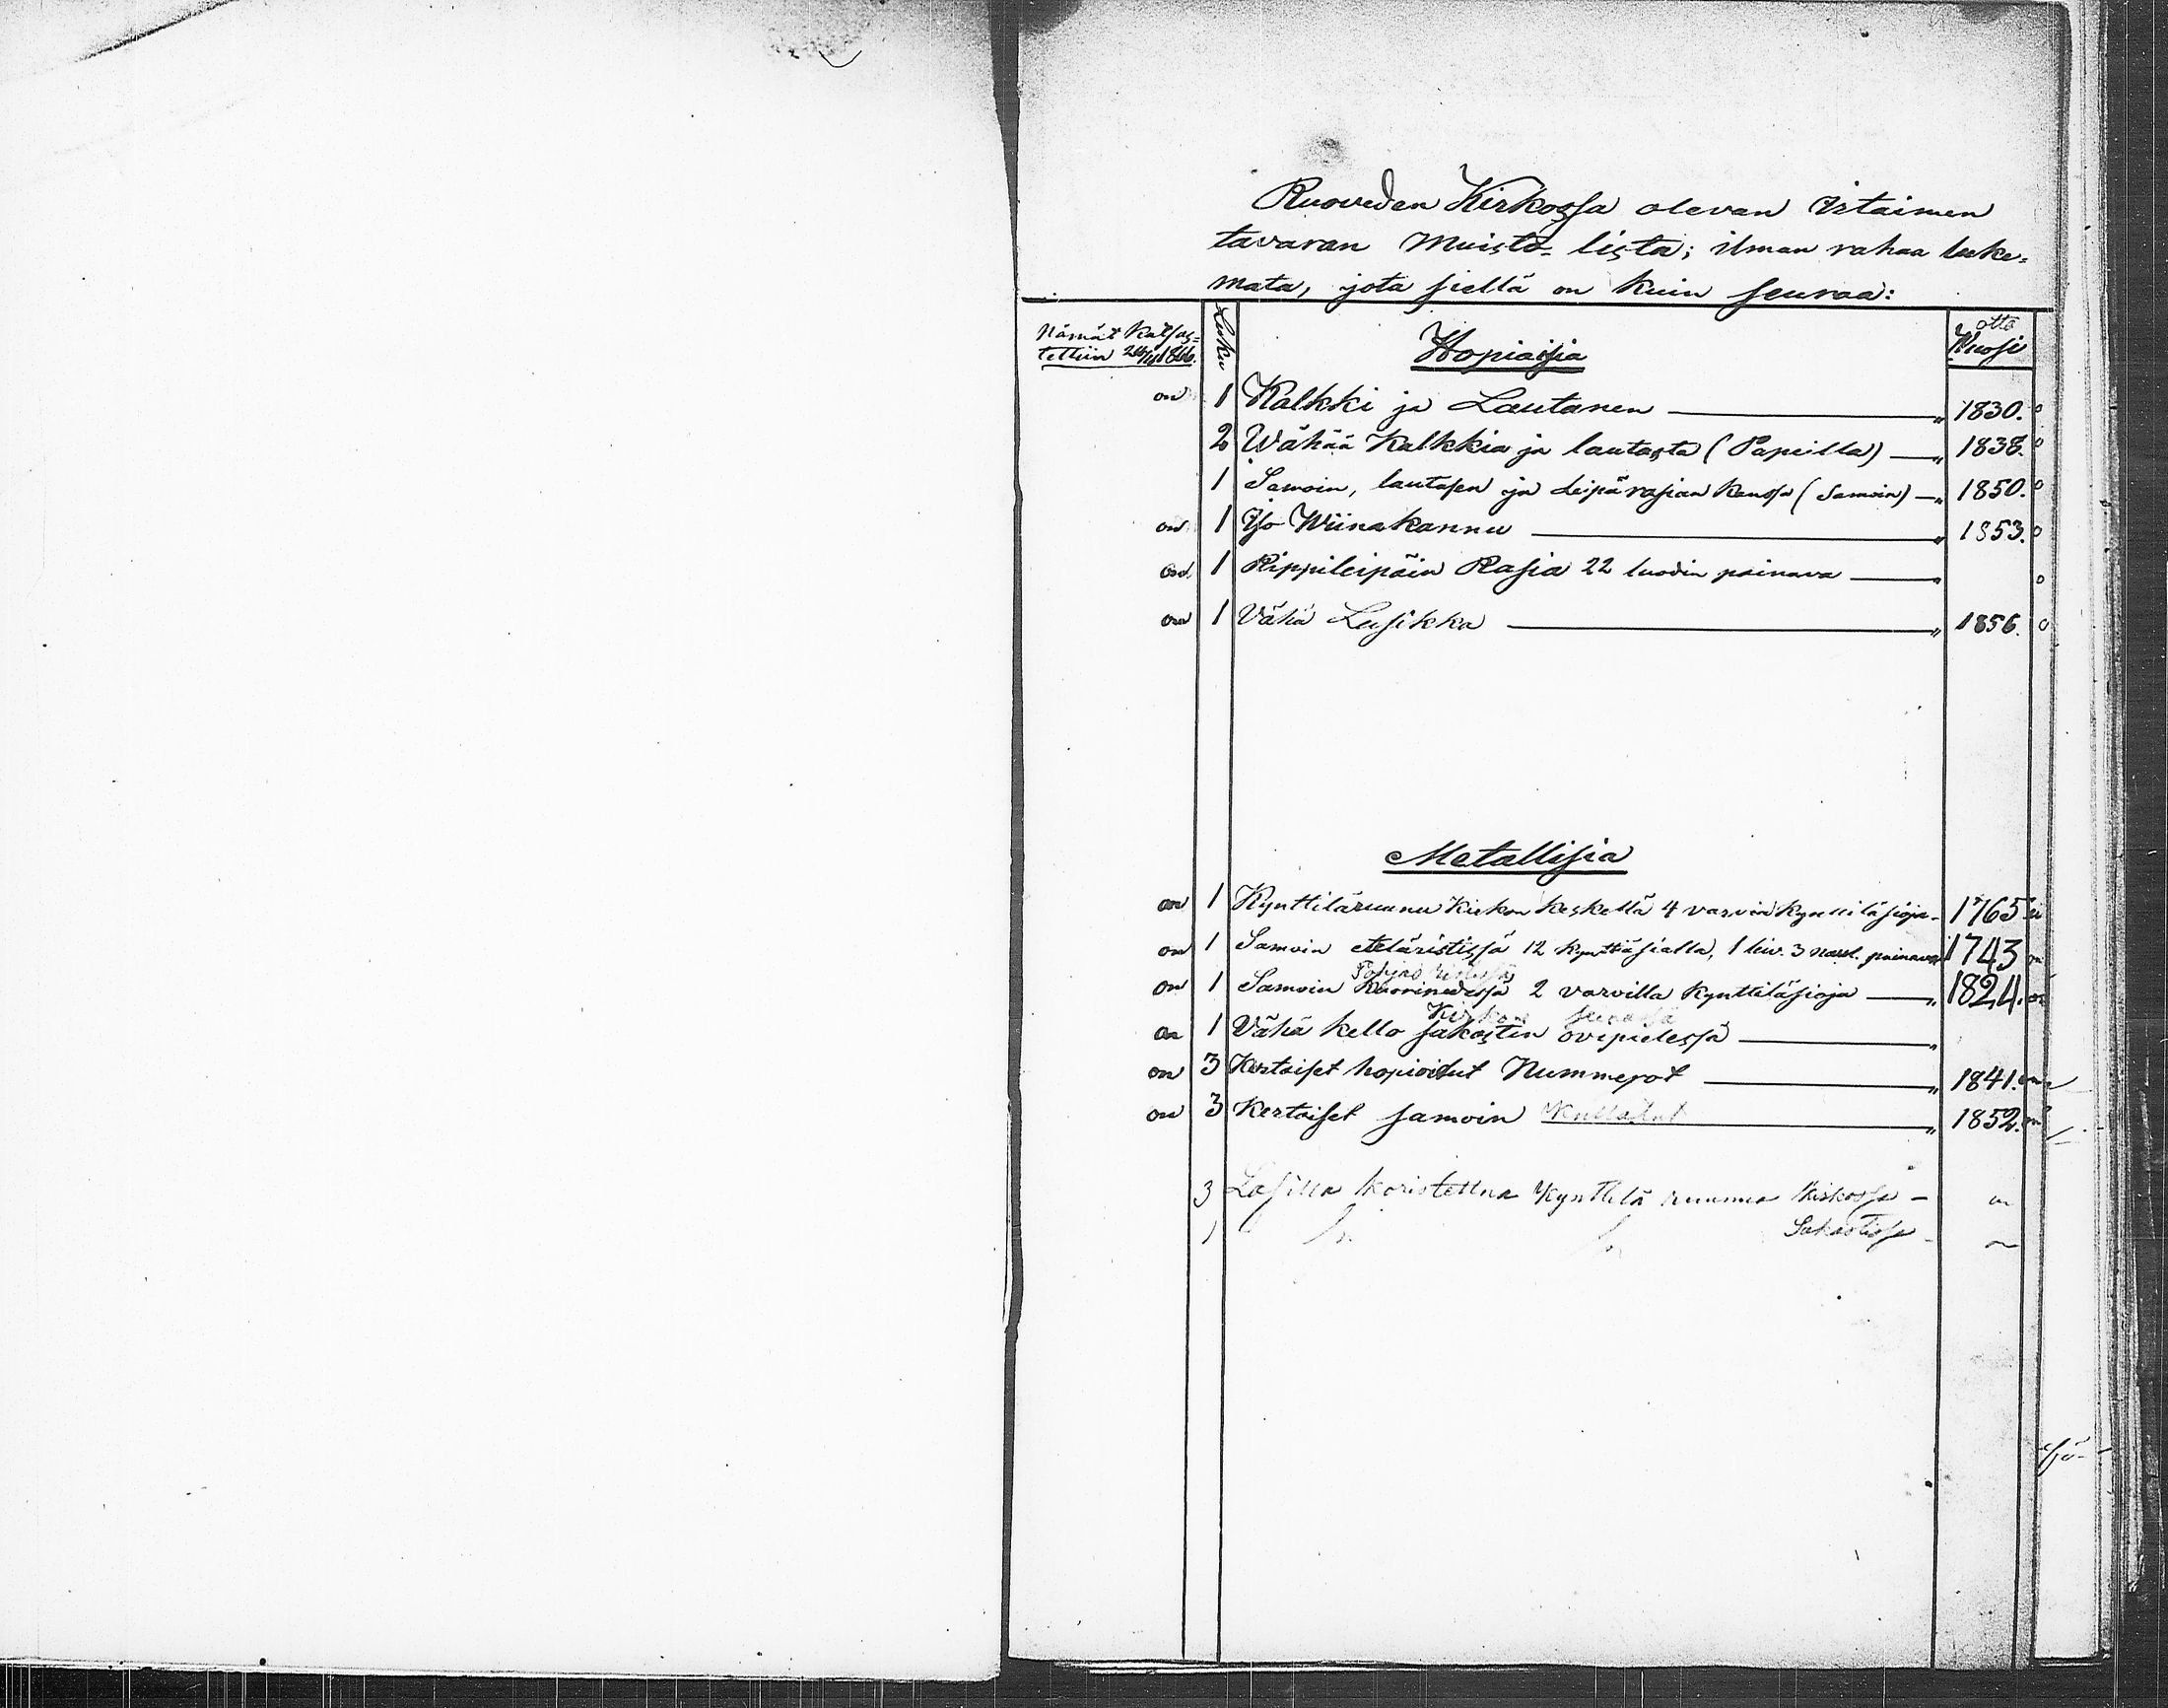 Ruoveden Kirkossa olevan Irtaimen
tavaran Muisto-lista; ilman rahaa luke-
mata, jota siellä on kuin seuraa:
Nämät Katsas-
tettiin 1866.
Luku
Hopiaisia
otto
Wuosi
on 1 Kalkki ja Lautanen " 1830. o
2 Wähää Kalkkia ja lautasta (Papeilla) " 1838. o
1 Samoin, lautasen ja Leipärasian kanssa (Samoin) " 1850. o
on 1 Iso Wiinakannu " 1853. o
on 1 Rippileipäin Rasia 22 luodin painava " o
on 1 Vähä Lusikka " 1856. o
Metallisia
on 1 Kynttiläruunu Kirkon keskellä 4 varvin Kynttiläsioja 1765 ei
on 1 Samoin eteläristissä 12 kynttiäsialla, 1 leiv. 3 naul. painava 1743 on
Pohjasristissä
on 1 Samoin 2 varvilla Kynttiläsioja " 1824. on
Kirkon seinässä
on 1 Vähä kello sakastin ovipielessä "
on 3 Kertaiset hopioidut Nummerot " 1841. on
on 3 Kertaiset samoin Kullatut " 1852. on
3 Lasilla koristettua Kynttilä ruunua Kirkossa - on
1 Sakastissa - on